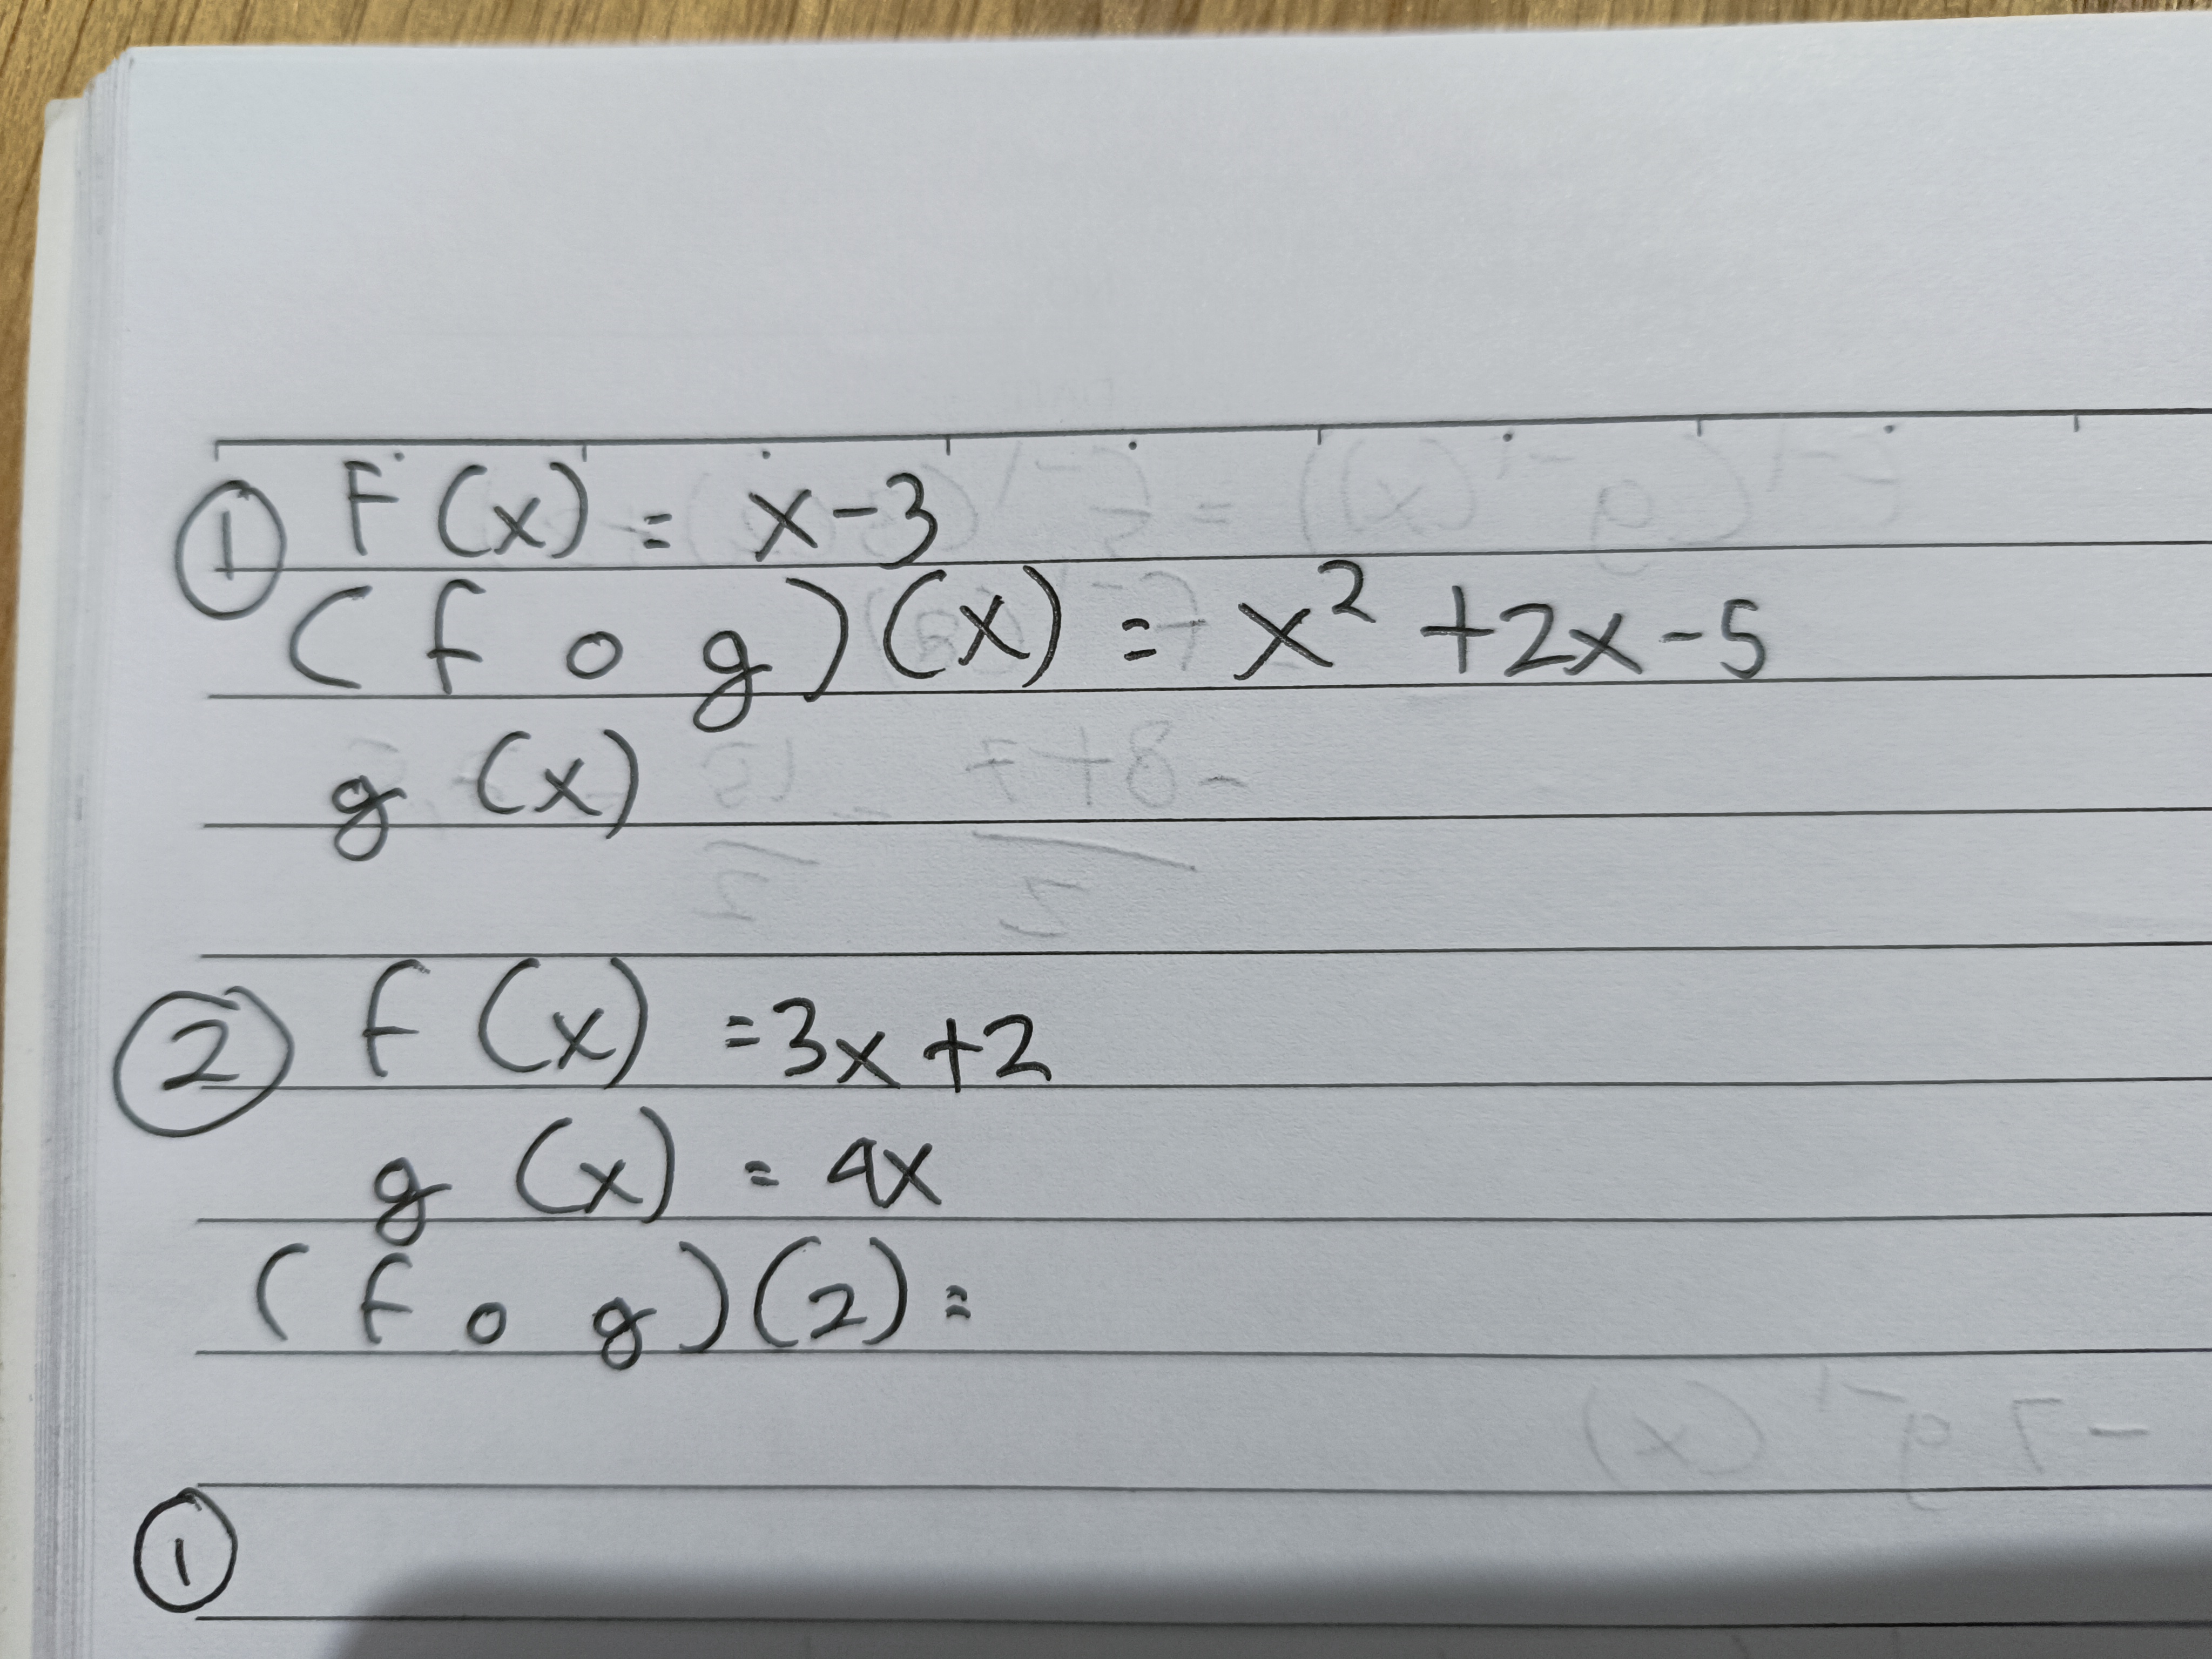 ① F(x) = x-3
(f o g)(x) = x² +2x-5
g (x)
② f (x) =3x+2
g (x) = 4x
(f o g)(2) =
①